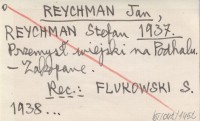 REYCHMAN Jan,
REYCHMAN Stefan 1937.
Przemysł wiejski na Podhalu.
– Zakopane.
Rec.: FLUKOWSKI S.
1938...